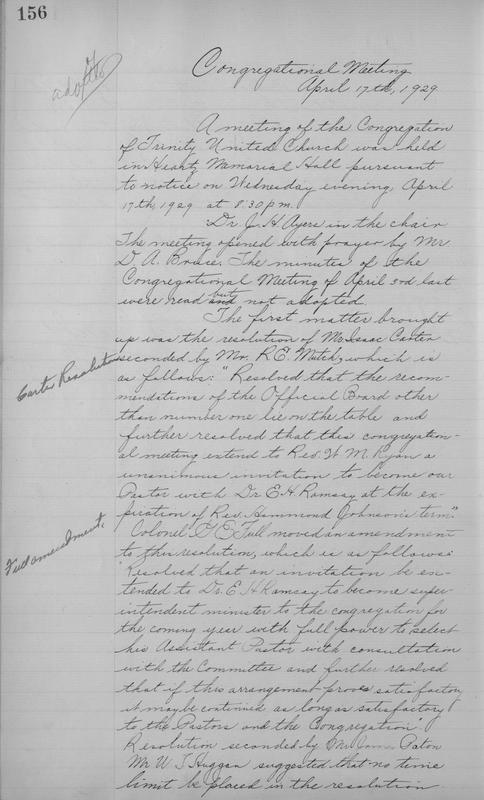 156
adopted
Congregational Meeting
April 17th, 1929
A meeting of the Congregation
of Trinity United Church was held
in Heartz Memorial Hall pursuant
to notice on Wednesday evening, April
17th, 1929 at 8:30 p.m.
Dr. J. H. Ayers in the chair
The meeting opened with prayer by Mr.
D. A. Bruce. The minutes of the
Congregational Meeting of April 3rd last
were read and but not adopted.
The first matter brought
up was the resolution of Mr. Isaac Carter
Carter Resolution
seconded by Mr. R. E. Mutch, which is
as follows: "Resolved that the recom-
mendations of the Official Board other
than number one lie on the table and
further resolved that this congregation-
al meeting extend to Rev. W. M. Ryan a
unanimous invitation to become our
Pastor with Dr. E. H. Ramsay at the ex-
piration of Rev. Hammond Johnson's term."
Colonel Full moved an amendment
Full amendment.
to this resolution, which is as follows:
"Resolved that an invitation be ex-
tended to Dr. E. H. Ramsay to become super-
intendent minister to the congregation for
the coming year with full power to select
his Assistant Pastor with consultation
with the Committee and further resolved
that if this arrangement proves satisfactory
it may be continued as long as satisfactory
to the Pastors and the Congregation"
Resolution seconded by Mr. James Paton
Mr. W. T. Huggan suggested that no time
limit be placed in the resolution